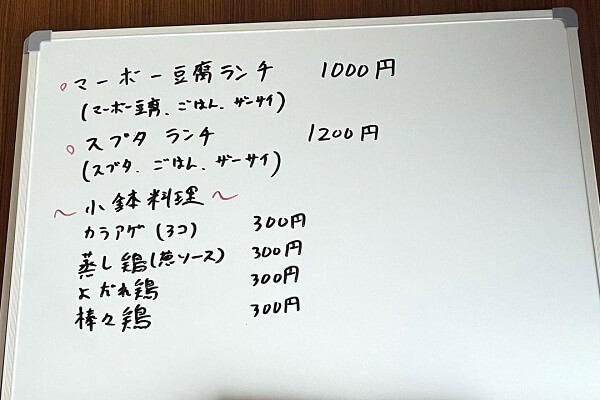 ○マーボー豆腐ランチ 1000円
(マーボー豆腐、ごはん、ザーサイ)
○スブタ ランチ 1200円
(スブタ、ごはん、ザーサイ)
～小鉢料理～
カラアゲ(3コ) 300円
蒸し鶏(葱ソース) 300円
よだれ鶏 300円
棒々鶏 300円